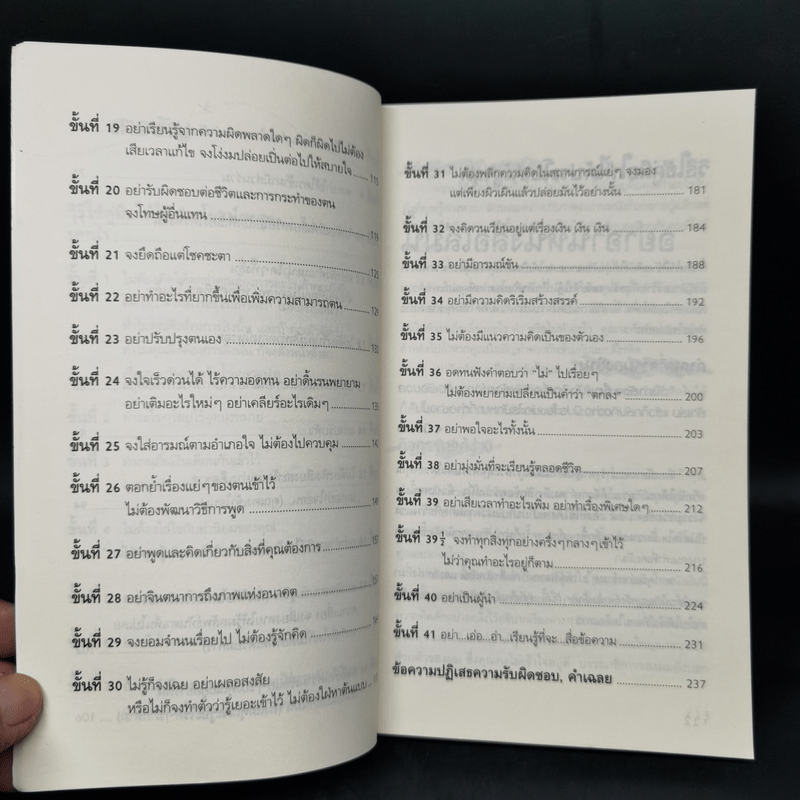 ขั้นที่ 19 อย่าเรียนรู้จากความผิดพลาดใดๆ ผิดก็ผิดไปไม่ต้อง
เสียเวลาแก้ไข จงโง่งมปล่อยเป็นต่อไปให้สบายใจ
ขั้นที่ 20 อย่ารับผิดชอบต่อชีวิตและการกระทำของตน
จงโทษผู้อื่นแทน
ขั้นที่ 21 จงยึดถือแต่โชคชะตา
ขั้นที่ 22 อย่าทำอะไรที่ยากขึ้นเพื่อเพิ่มความสามารถตน
ขั้นที่ 23 อย่าปรับปรุงตนเอง
ขั้นที่ 24 จงใจเร็วด่วนได้ ไร้ความอดทน อย่าดิ้นรนพยายาม
อย่าเติมอะไรใหม่ๆ อย่าเคลียร์อะไรเดิมๆ
ขั้นที่ 25 จงใส่อารมณ์ตามอำเภอใจ ไม่ต้องไปควบคุม
ขั้นที่ 26 ตอกย้ำเรื่องแย่ๆของตนเข้าไว้
ไม่ต้องพัฒนาวิธีการพูด
ขั้นที่ 27 อย่าพูดและคิดเกี่ยวกับสิ่งที่คุณต้องการ
ขั้นที่ 28 อย่าจินตนาการถึงภาพแห่งอนาคต
ขั้นที่ 29 จงยอมจำนนเรื่อยไป ไม่ต้องรู้จักคิด
ขั้นที่ 30 ไม่รู้ก็จงเฉย อย่าเผลอสงสัย
หรือไม่ก็จงทำตัวว่ารู้เยอะเข้าไว้ ไม่ต้องใฝ่หาต้นแบบ
ขั้นที่ 31 ไม่ต้องพลิกความคิดในสถานการณ์แย่ๆ จงมอง
แต่เพียงผิวเผินแล้วปล่อยมันไว้อย่างนั้น 181
ขั้นที่ 32 จงคิดวนเวียนอยู่แต่เรื่องเงิน เงิน เงิน 184
ขั้นที่ 33 อย่ามีอารมณ์ขัน 188
ขั้นที่ 34 อย่ามีความคิดริเริ่มสร้างสรรค์ 192
ขั้นที่ 35 ไม่ต้องมีแนวความคิดเป็นของตัวเอง 196
ขั้นที่ 36 อดทนฟังคำตอบว่า "ไม่" ไปเรื่อยๆ
ไม่ต้องพยายามเปลี่ยนเป็นคำว่า "ตกลง" 200
ขั้นที่ 37 อย่าพอใจอะไรทั้งนั้น 203
ขั้นที่ 38 อย่ามุ่งมั่นที่จะเรียนรู้ตลอดชีวิต 207
ขั้นที่ 39 อย่าเสียเวลาทำอะไรเพิ่ม อย่าทำเรื่องพิเศษใดๆ 212
ขั้นที่ 39½ จงทำทุกสิ่งทุกอย่างครึ่งๆกลางๆเข้าไว้
ไม่ว่าคุณทำอะไรอยู่ก็ตาม 216
ขั้นที่ 40 อย่าเป็นผู้นำ 224
ขั้นที่ 41 อย่า...เอ่อ...อ่า...เรียนรู้ที่จะ...สื่อข้อความ 231
ข้อความปฏิเสธความรับผิดชอบ, คำเฉลย 237